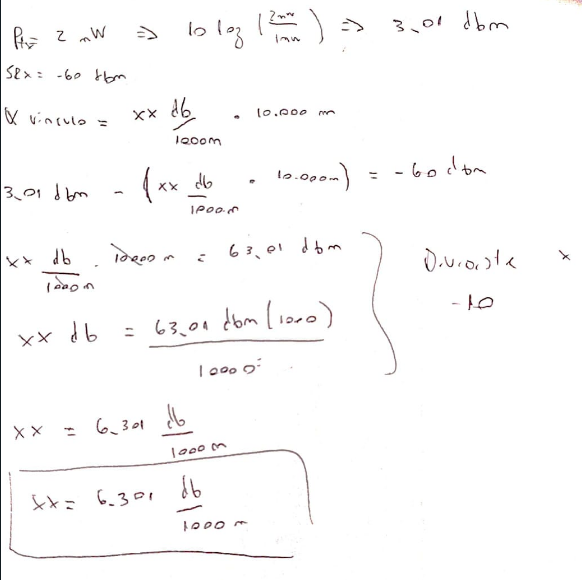 Ptx= 2 mW => 10 log (2mw/1mw) => 3,01 dbm
SRx = -60 dbm
α vinculo = xx db/1000m . 10.000 m
3,01 dbm - (xx db/1000m . 10.000m) = -60 dbm
xx db/1000m . 10000 m = 63,01 dbm
xx db = 63,01 dbm (1000)/10000
x
-10
xx = 6,301 db/1000m
xx = 6,301 db/1000 m